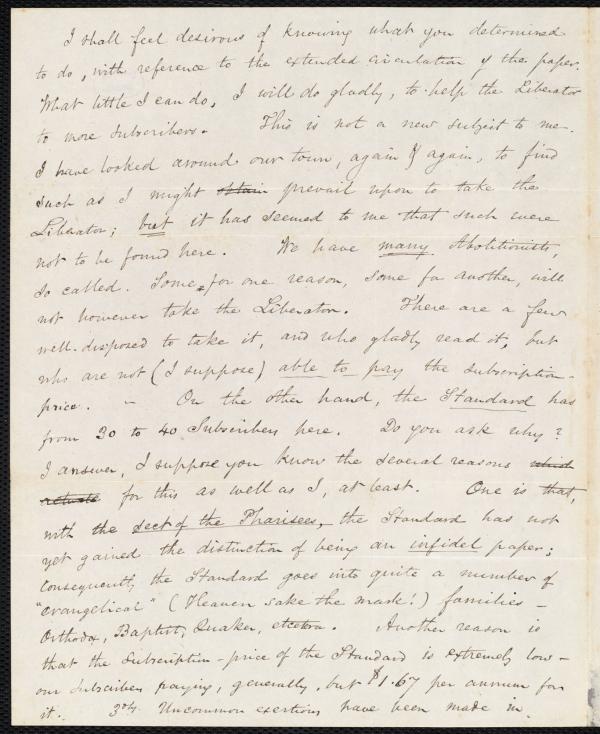 I shall feel desirous of knowing what you determined
to do, with reference to the extended circulation of the paper.
What little I can do, I will do gladly, to help the Liberator
to more subscribers. This is not a new subject to me.
I have looked around our town, again & again, to find
such as I might obtain prevail upon to take the
Liberator; but it has seemed to me that such were
not to be found here. We have many Abolitionists,
so called. Some, for one reason, some for another, will
not however take the Liberator. There are a few
well-disposed to take it, and who gladly read it, but
who are not (I suppose) able to pay the subscription-
price. – On the other hand, the Standard has
from 30 to 40 Subscribers here. Do you ask why?
I answer, I suppose you know the several reasons which
actuate for this as well as I, at least. One is that,
with the sect of the Pharisees, the Standard has not
yet gained the distinction of being an infidel paper;
consequently the Standard goes into quite a number of
"evangelical" (Heaven sake the mark!) families –
Orthodox, Baptist, Quaker, etcetera. Another reason is
that the Subscription-price of the Standard is extremely low –
our subscribers paying, generally, but $1.67 per annum for
it. 3dly. Uncommon exertions have been made in